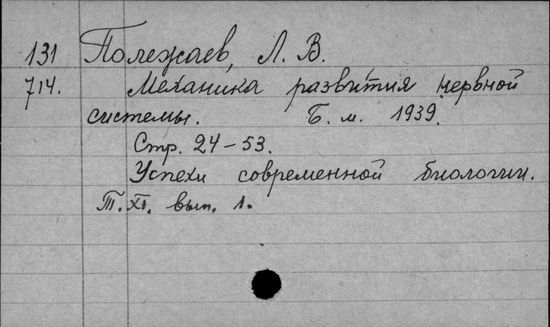 131 Полежаев, Л. В.
714. Механика развития нервной
системы. Б. м. 1939.
Стр. 24-53.
Успехи современной биологии.
Т. XI. вып. 1.